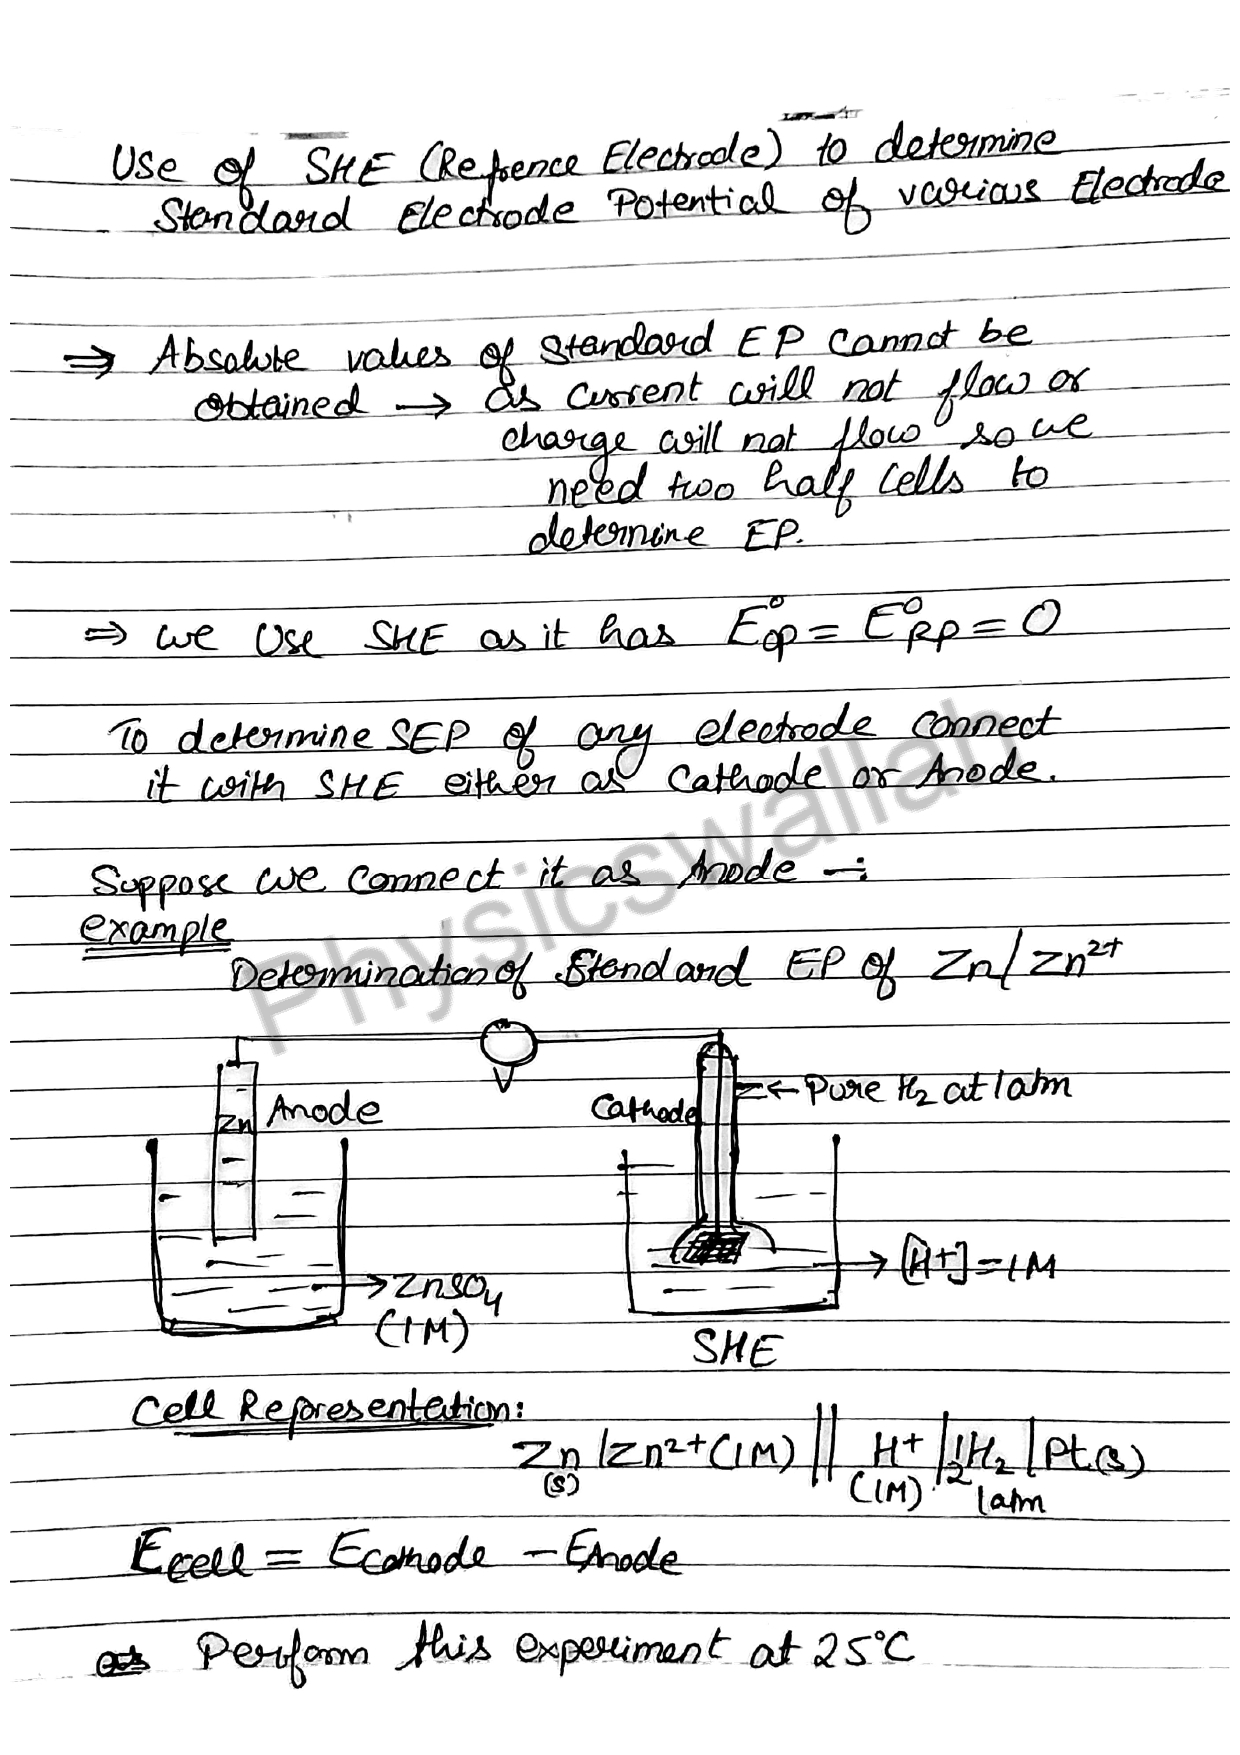 Use of SHE (Refrence Electrode) to determine
Standard Electrode Potential of various Electrode
⇒ Absolute values of standard EP cannot be
obtained → as current will not flow or
charge will not flow so we
need two half cells to
determine EP.
⇒ we Use SHE as it has E°op = E°RP = 0
To determine SEP of any electrode connect
it with SHE either as Cathode or Anode.
Suppose we connect it as Anode –:
example
Determination of Standard EP of Zn/Zn²⁺
V
Zn Anode
Cathode
← Pure H₂ at 1 atm
→ ZnSO₄
(1M)
→ [H+] = 1M
SHE
Cell Representation:
Zn(s) | Zn²⁺ (1M) || H⁺ (1M) | 1/2 H₂ 1atm | Pt(s)
Ecell = Ecathode – EAnode
Perform this experiment at 25°C
Physicswallah